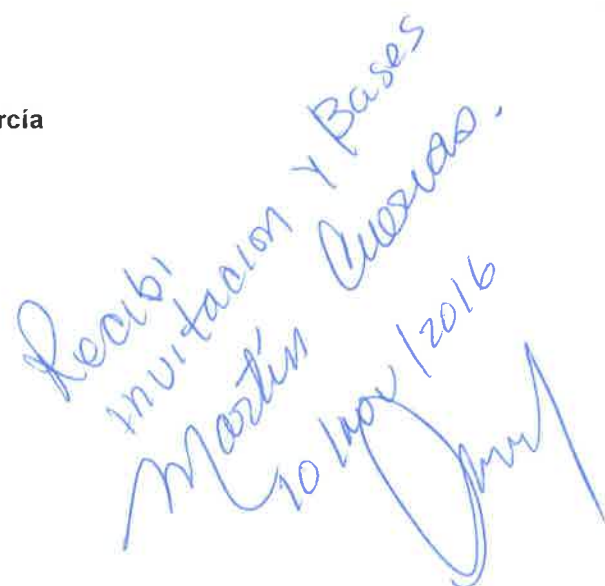 rcía
Recibi
invitacion y Bases
Martín Cuevas.
10/nov/2016